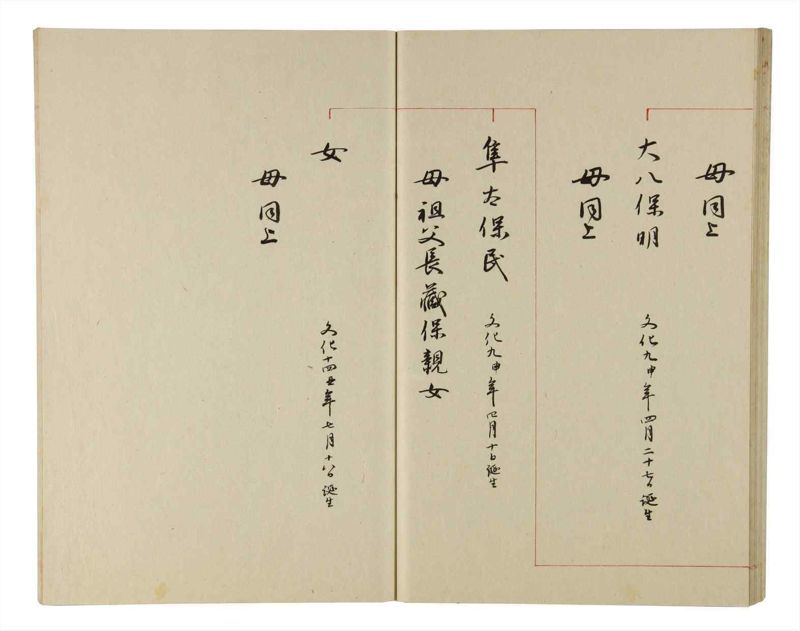 母同上
大八保明
文化九申年四月二十七日誕生
母同上
隼太保民
文化九申年四月十日誕生
母祖父長蔵保親女
女
文化十四丑年七月十八日誕生
母同上